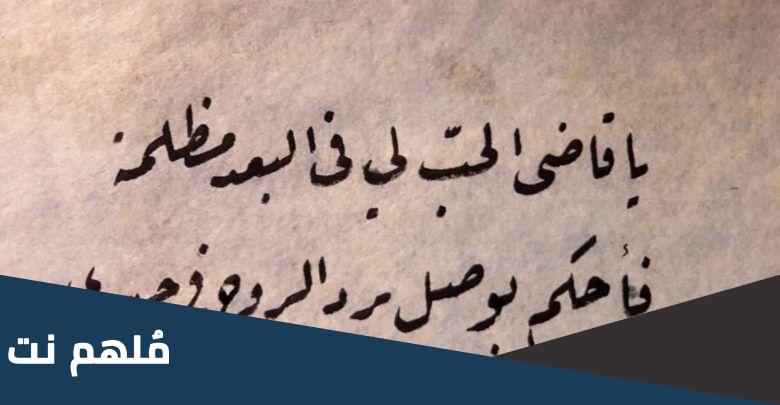 يا قاضى الحبّ لي في البعد مظلمة
فأحكم بوصل يرد الروح في
مُلهم نت